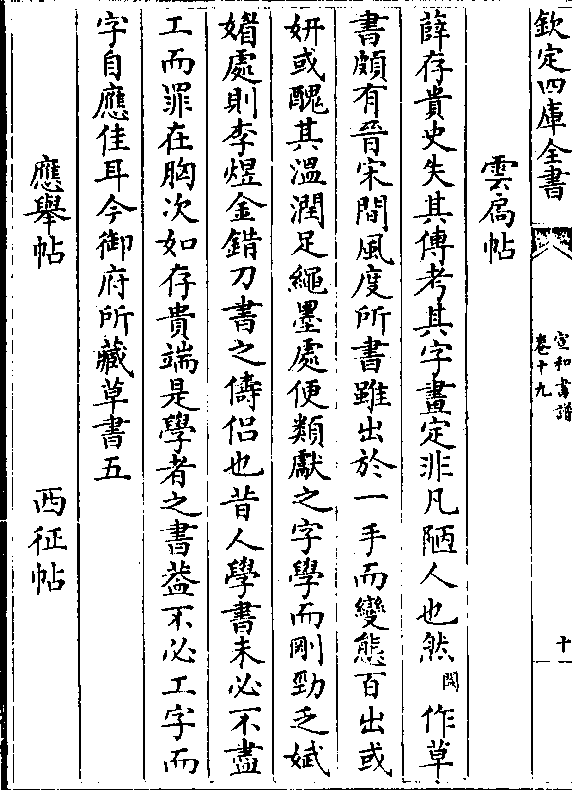 欽定四庫全書
宣和書譜
卷十九
十
雲扃帖
薛存貴史失其傳考其字畫定非凡陋人也然闕作草
書頗有晉宋間風度所書雖出於一手而變態百出或
妍或醜其溫潤足繩墨處便類獻之字學而剛勁乏娬
媚處則李煜金錯刀書之儔侶也昔人學書未必不盡
工而罪在胸次如存貴端是學者之書葢不必工字而
字自應佳耳今御府所藏草書五
應舉帖　西征帖